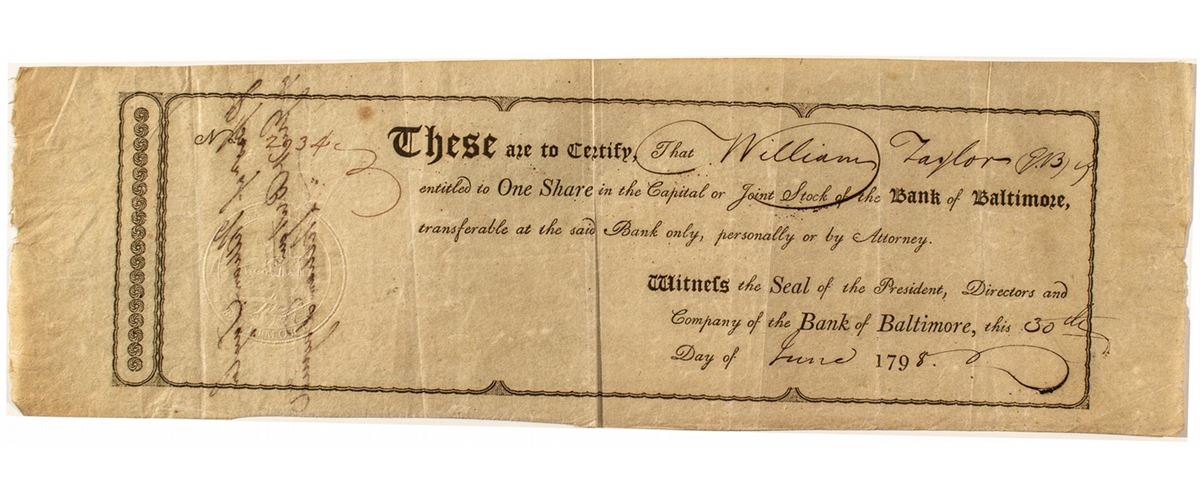 No. 2934
These are to Certify, That William Taylor
entitled to One Share in the Capital or Joint Stock of the Bank of Baltimore,
transferable at the said Bank only, personally or by Attorney.
Witneſs the Seal of the President, Directors and
Company of the Bank of Baltimore, this 30th
Day of June 1798.